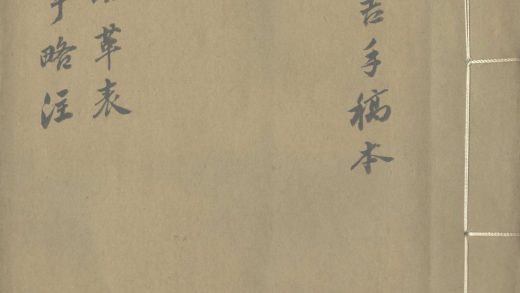 手稿本
革表
略注